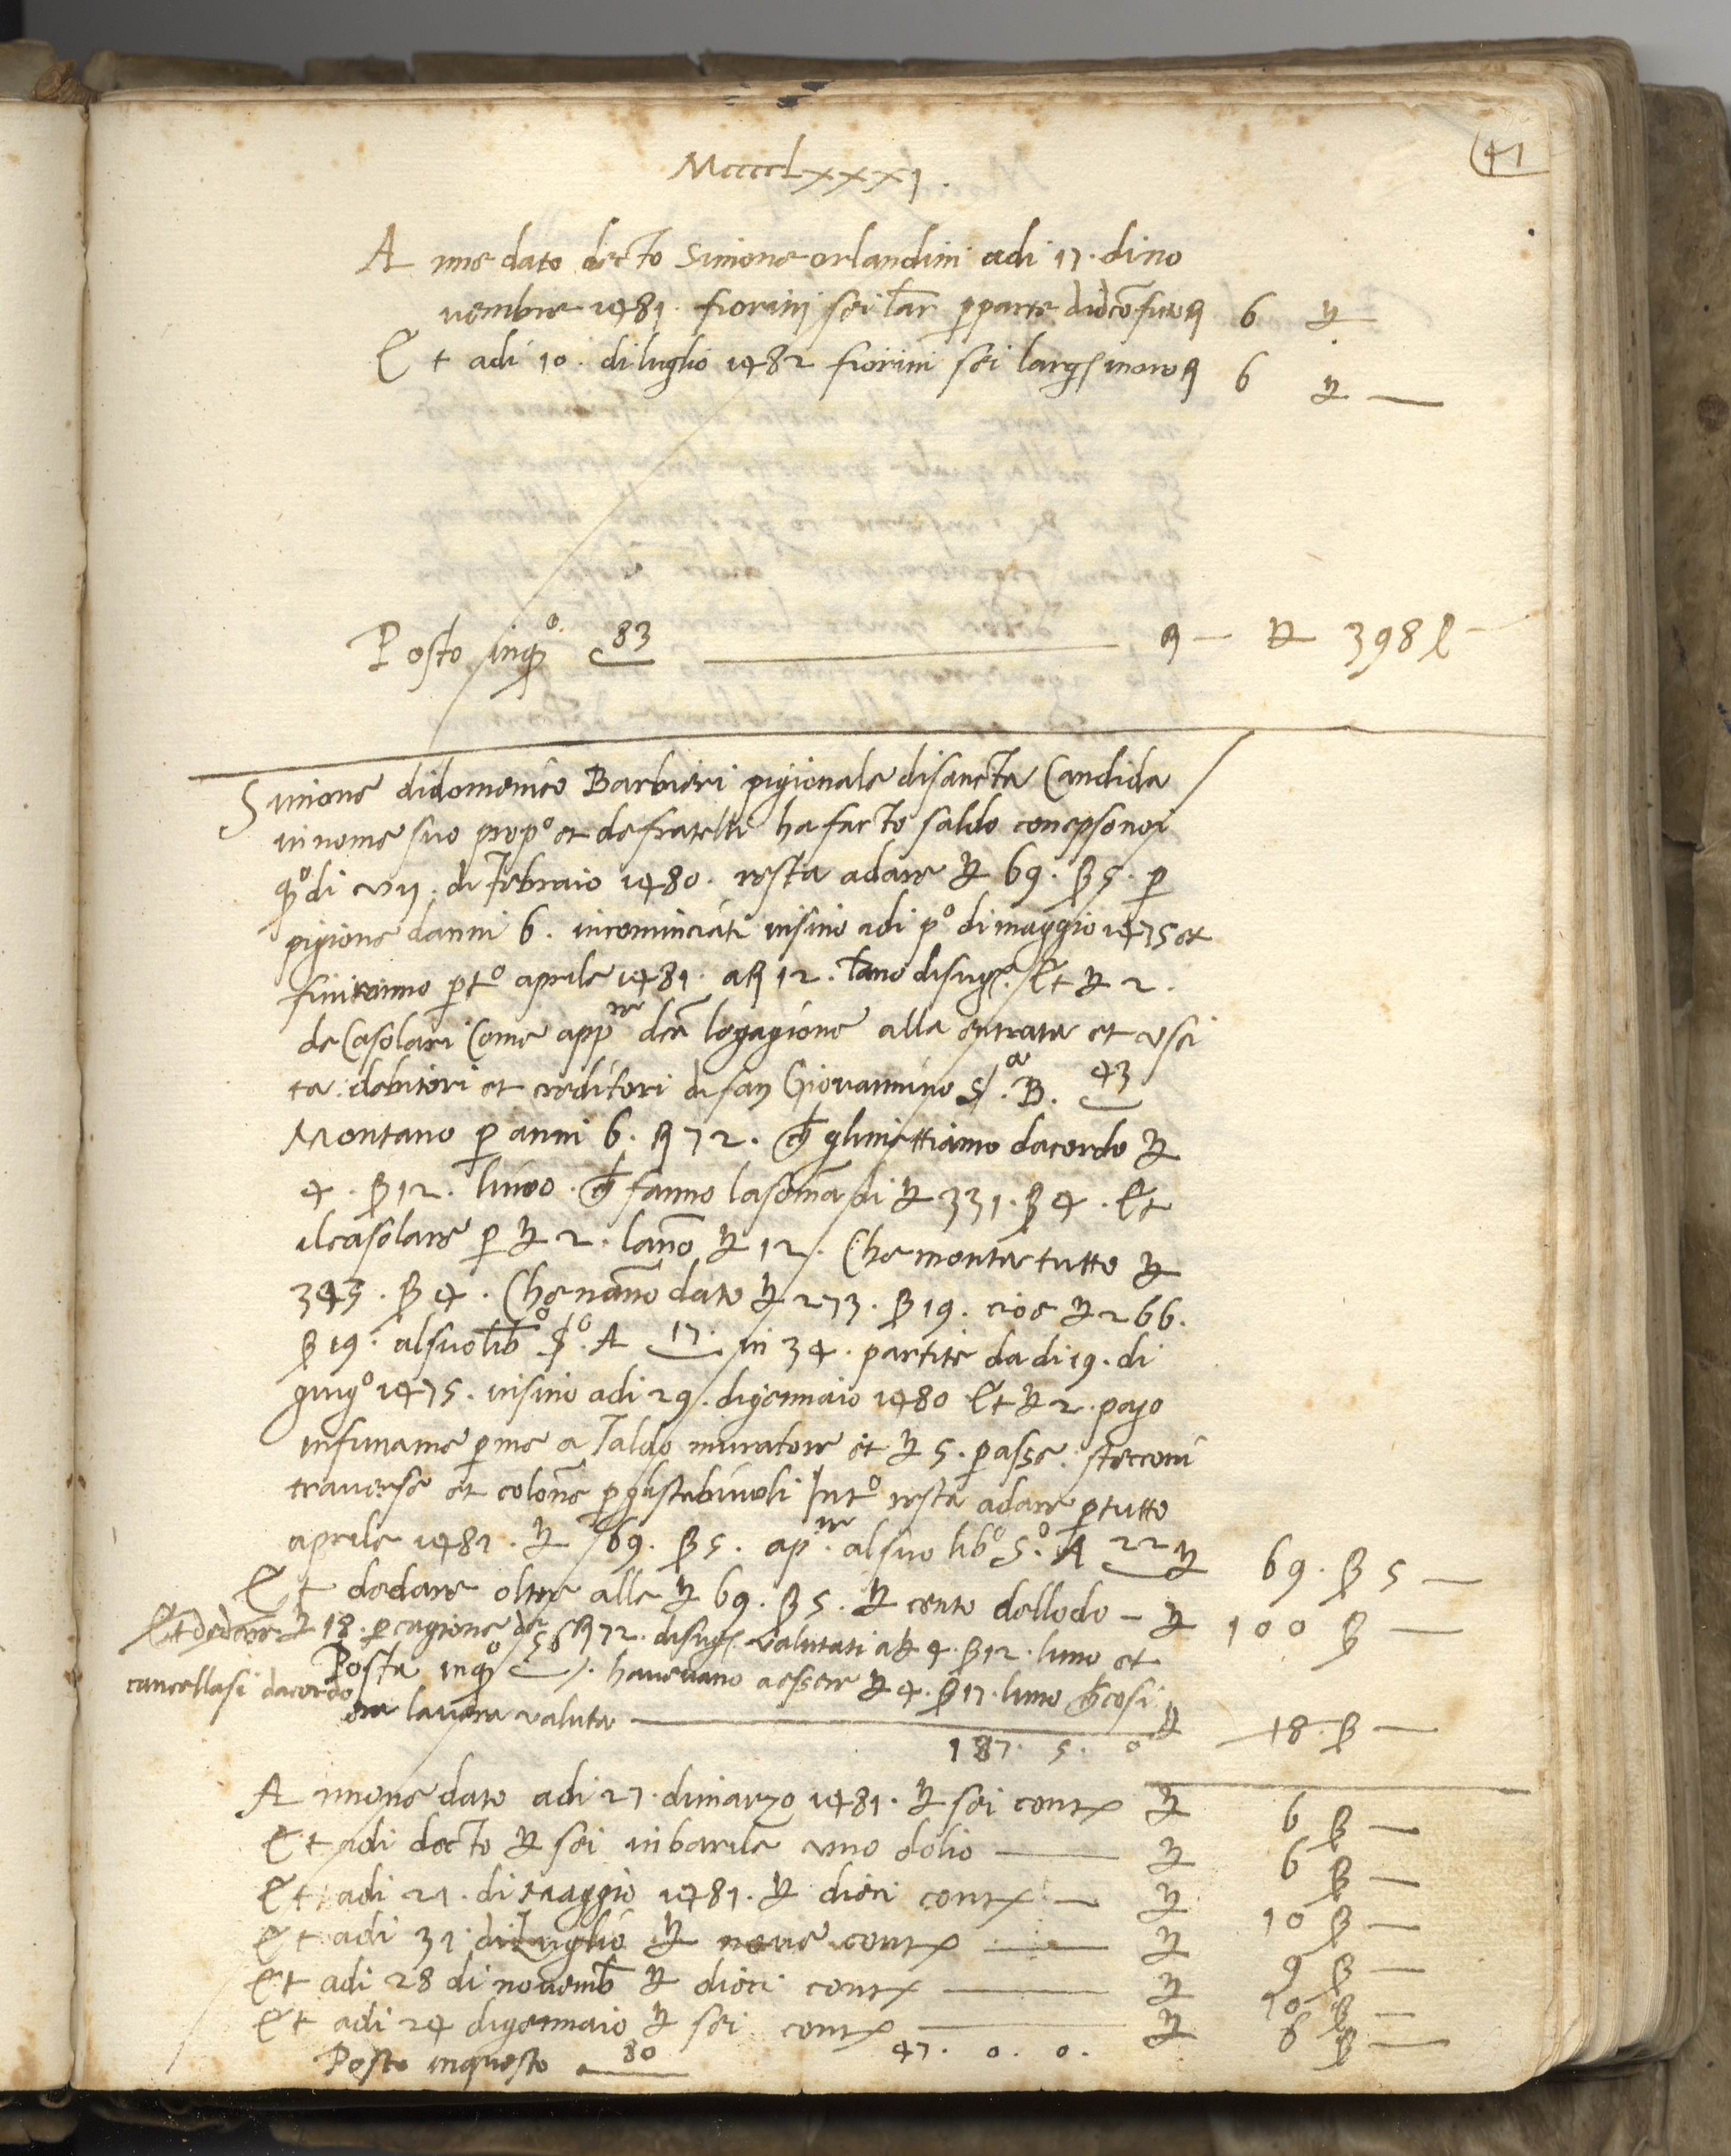 41
MccccLxxxj.
A mme dato decto Simone orlandini adi 17. dino
uembre 1481. fiorini sei lar p parte 6
Et adi 10. di luglio 1482 fiorini sei largh 6
Posto inqo c 83 398
Simone didomenico Barbieri pigionale disancta Candida
in nome suo propo et defratelli ha facto saldo con
qo di VII. di febraio 1480. resta adare 69. β 5. p
pigione danni 6. incominciati insino adi po dimaggio 1475 et
finiranno p to aprile 1481. a 12. lano disug. Et 2.
de Casolari Come app re logagione alla entrata et usci
ta debitori et creditori di san Giouannino So. B. 43
Montano p anni 6. 72. ch glimettiamo dacordo
4. β 12. luno. ch fanno lasoma di 331. β 4. Et
ilcasolare p 2. lano 12. Che monta tutto
343. β 4. Che nano dato 273. β 19. cioe 266.
β 19. alsuo libo So. A 17. in 34. partite da di 19. di
giugo 1475. insino adi 29. digennaio 1480 Et 2. pago
infuname p me a Taldo muratore et 5. p asse. stecconi
trauerse et colone p glistabiuoli Into resta adare p tutto
aprile 1481. 69. β 5. ap re. alsuo libo So. A 22 69. β 5
Et dedare oltre alle 69. β 5. cento dellodo 100 β
Et dedare 18. p cagione de 72. disug. valutati a 4. β 12. luno et
Posta inqo c 50. haueuano aessere 4. β 17. luno ch cosi
cancellasi dacordo
era lauera valuta 18. β
187. 5. 0
A mmene dato adi 27. dimarzo 1481. sei contx 6 β
Et adi decto sei inbarile uno dolio 6 β
Et adi 21. di maggio 1481. dieci contx 10 β
Et adi 31. di Luglio noue contx 9 β
Et adi 28 di nouemb dieci contx 10 β
Et adi 24 digennaio sei contx 6 β
Posto inquesto 80 47. 0. 0.